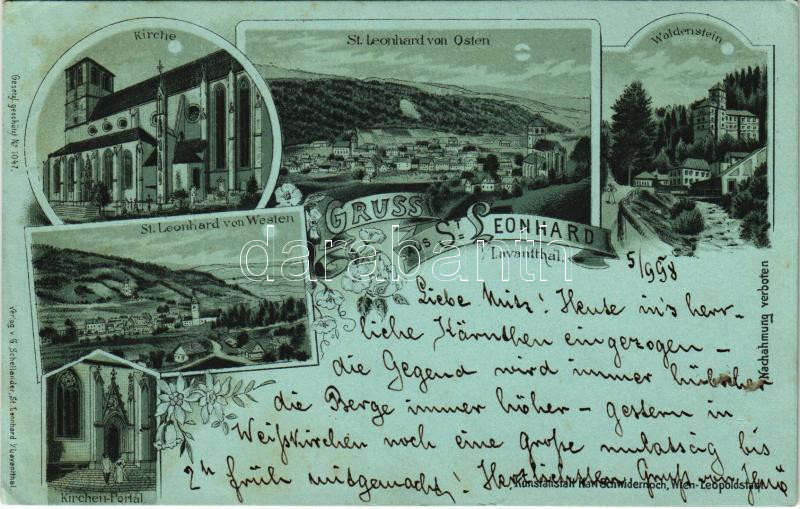 Kirche
St. Leonhard von Osten
Waldenstein
Gesetzl. geschützt Nr. 1047.
St. Leonhard von Westen
GRUSS
aus ST. LEONHARD
Lavantthal.
darabanth.com
5/9 98
Liebe Mitz! Heute in's herr-
liche Kärnthen eingezogen –
die Gegend wird immer hübscher
die Berge immer höher – gestern in
Weißkirchen noch eine Große mulatság bis
2h früh mitgemacht! Herzlichsten Gruß von Jenö
Nachahmung verboten
Verlag v. G. Schießlander, St. Leonhard i/Lavanthal.
Kirchen-Portal
Kunstanstalt Karl Schwidernoch, Wien-Leopoldstadt.